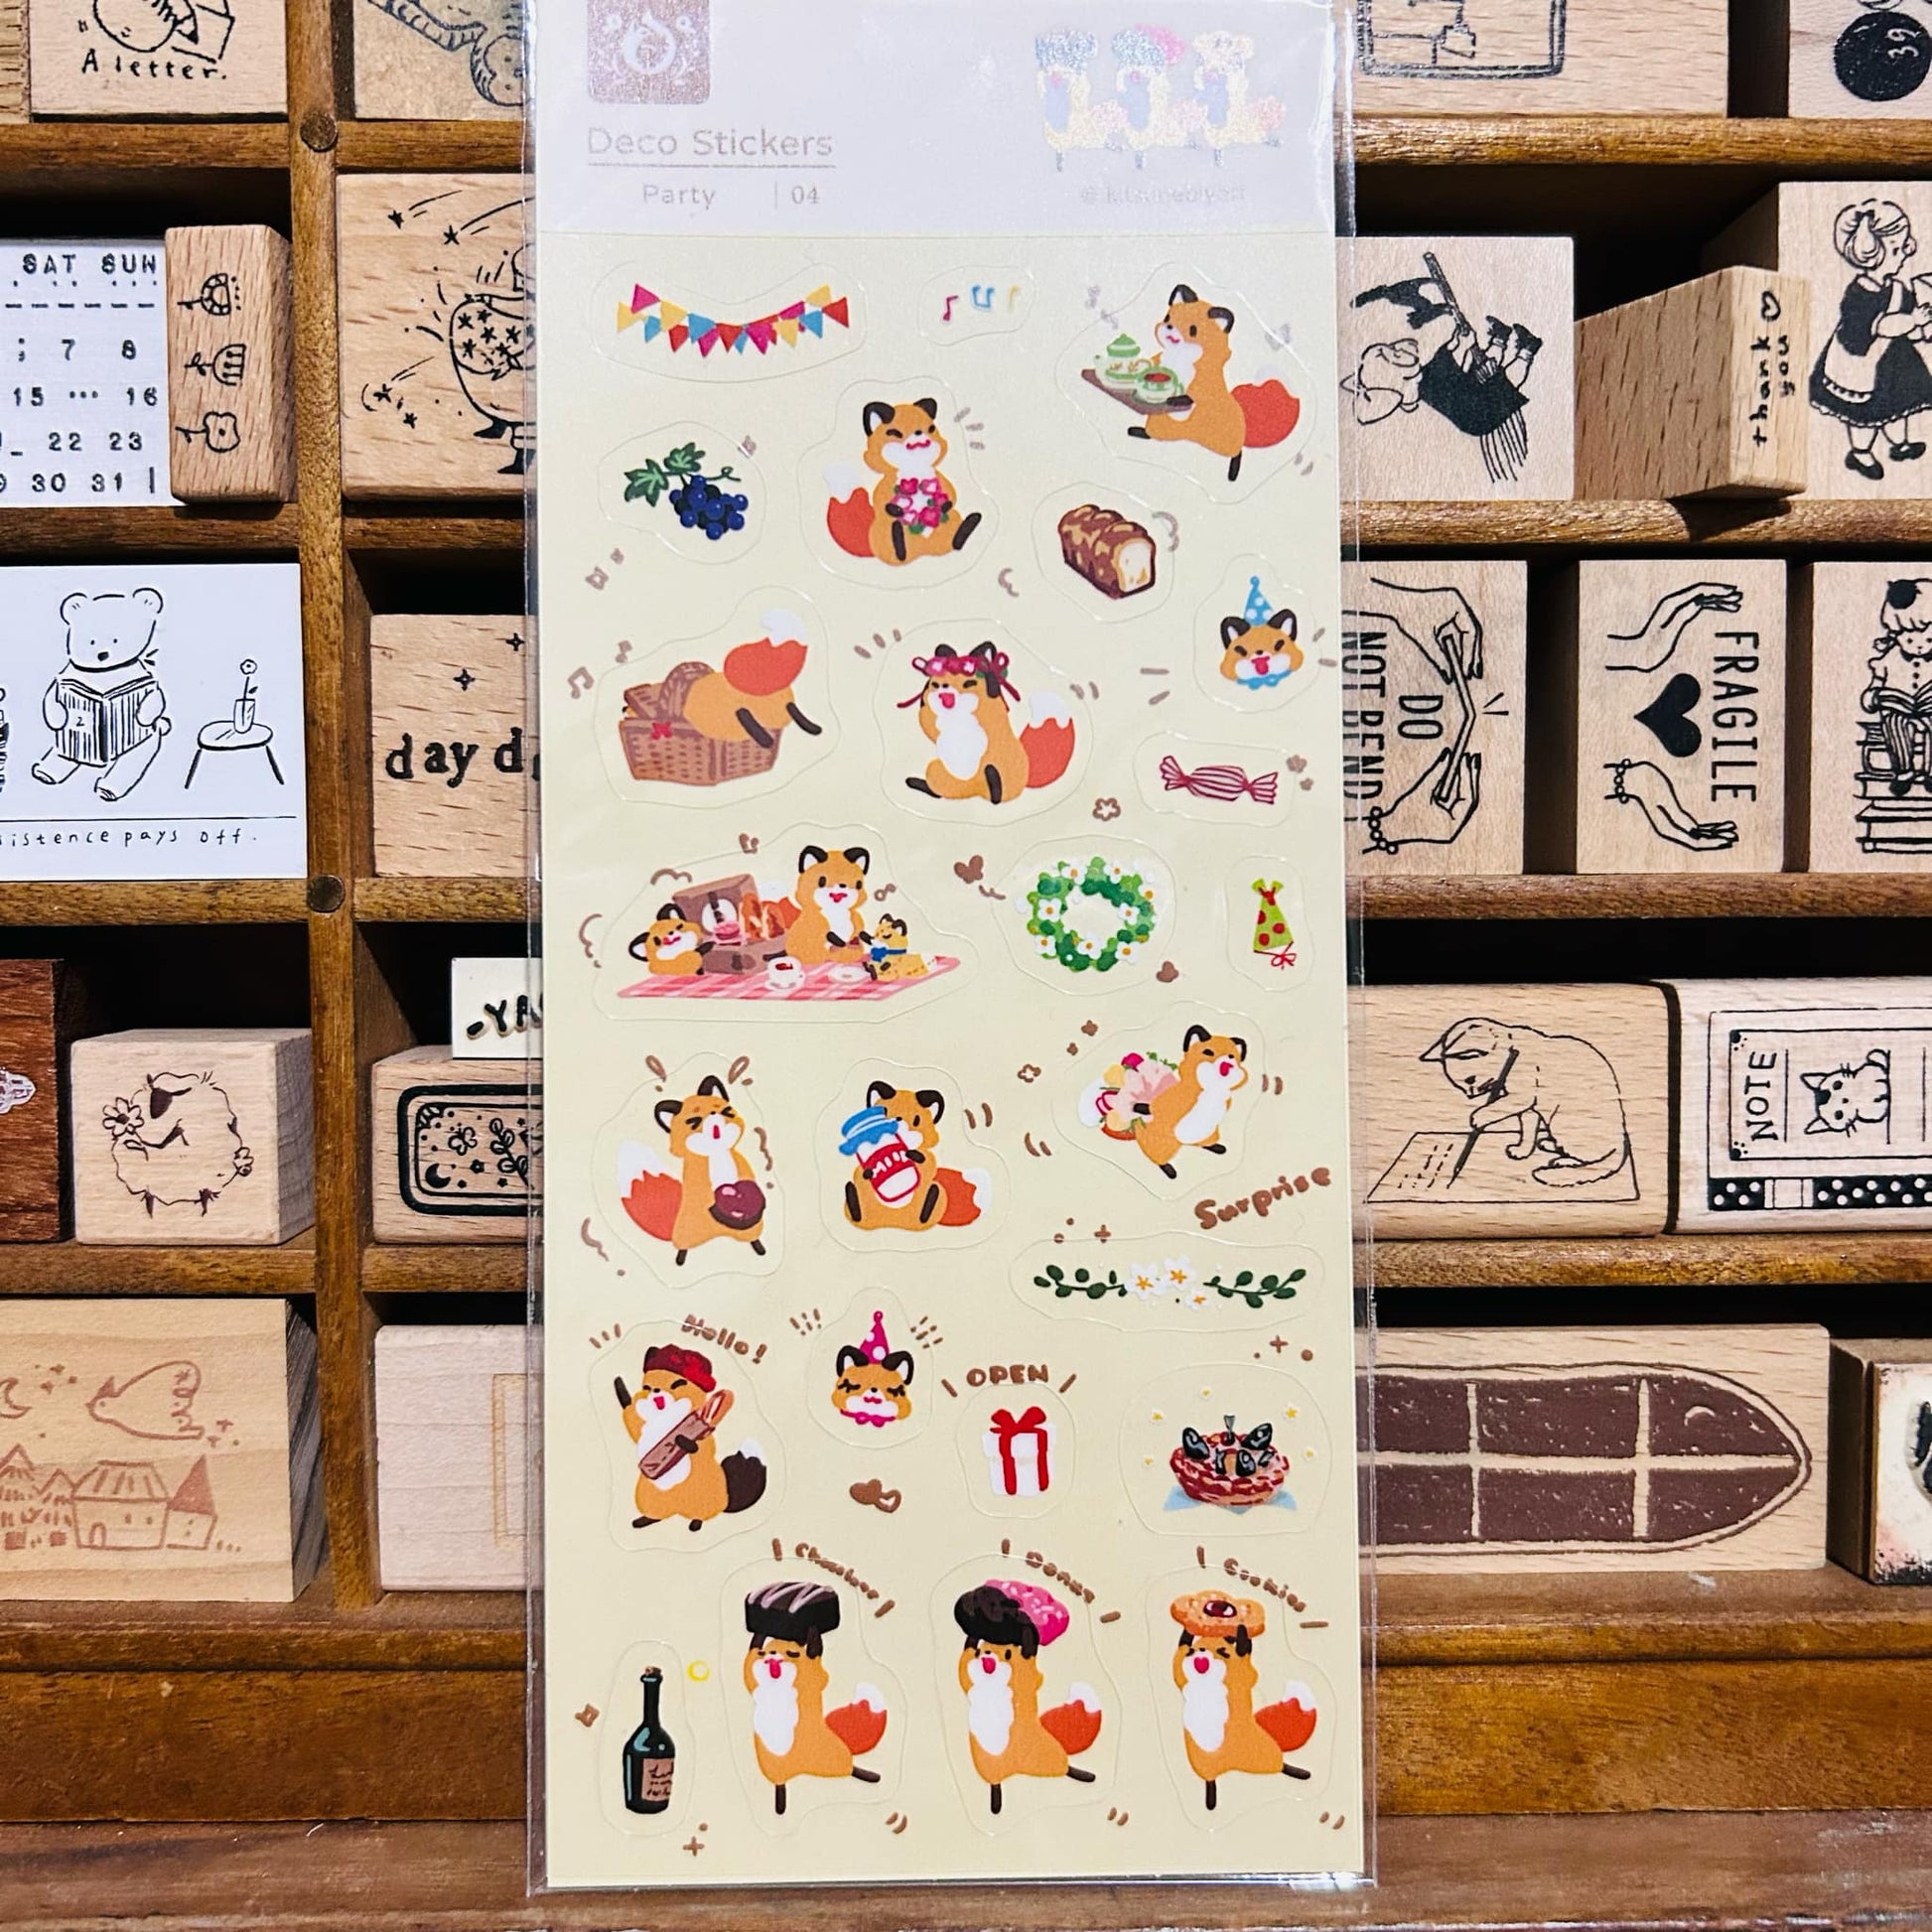 A letter.
39
Deco Stickers
Party | 04
SAT SUN
7 8
15 ... 16
22 23
30 31
thank you
DO NOT BEND
FRAGILE
day
sistence pays off.
NOTE
MILK
Surprise
Hello!
OPEN
Donut
Cookies